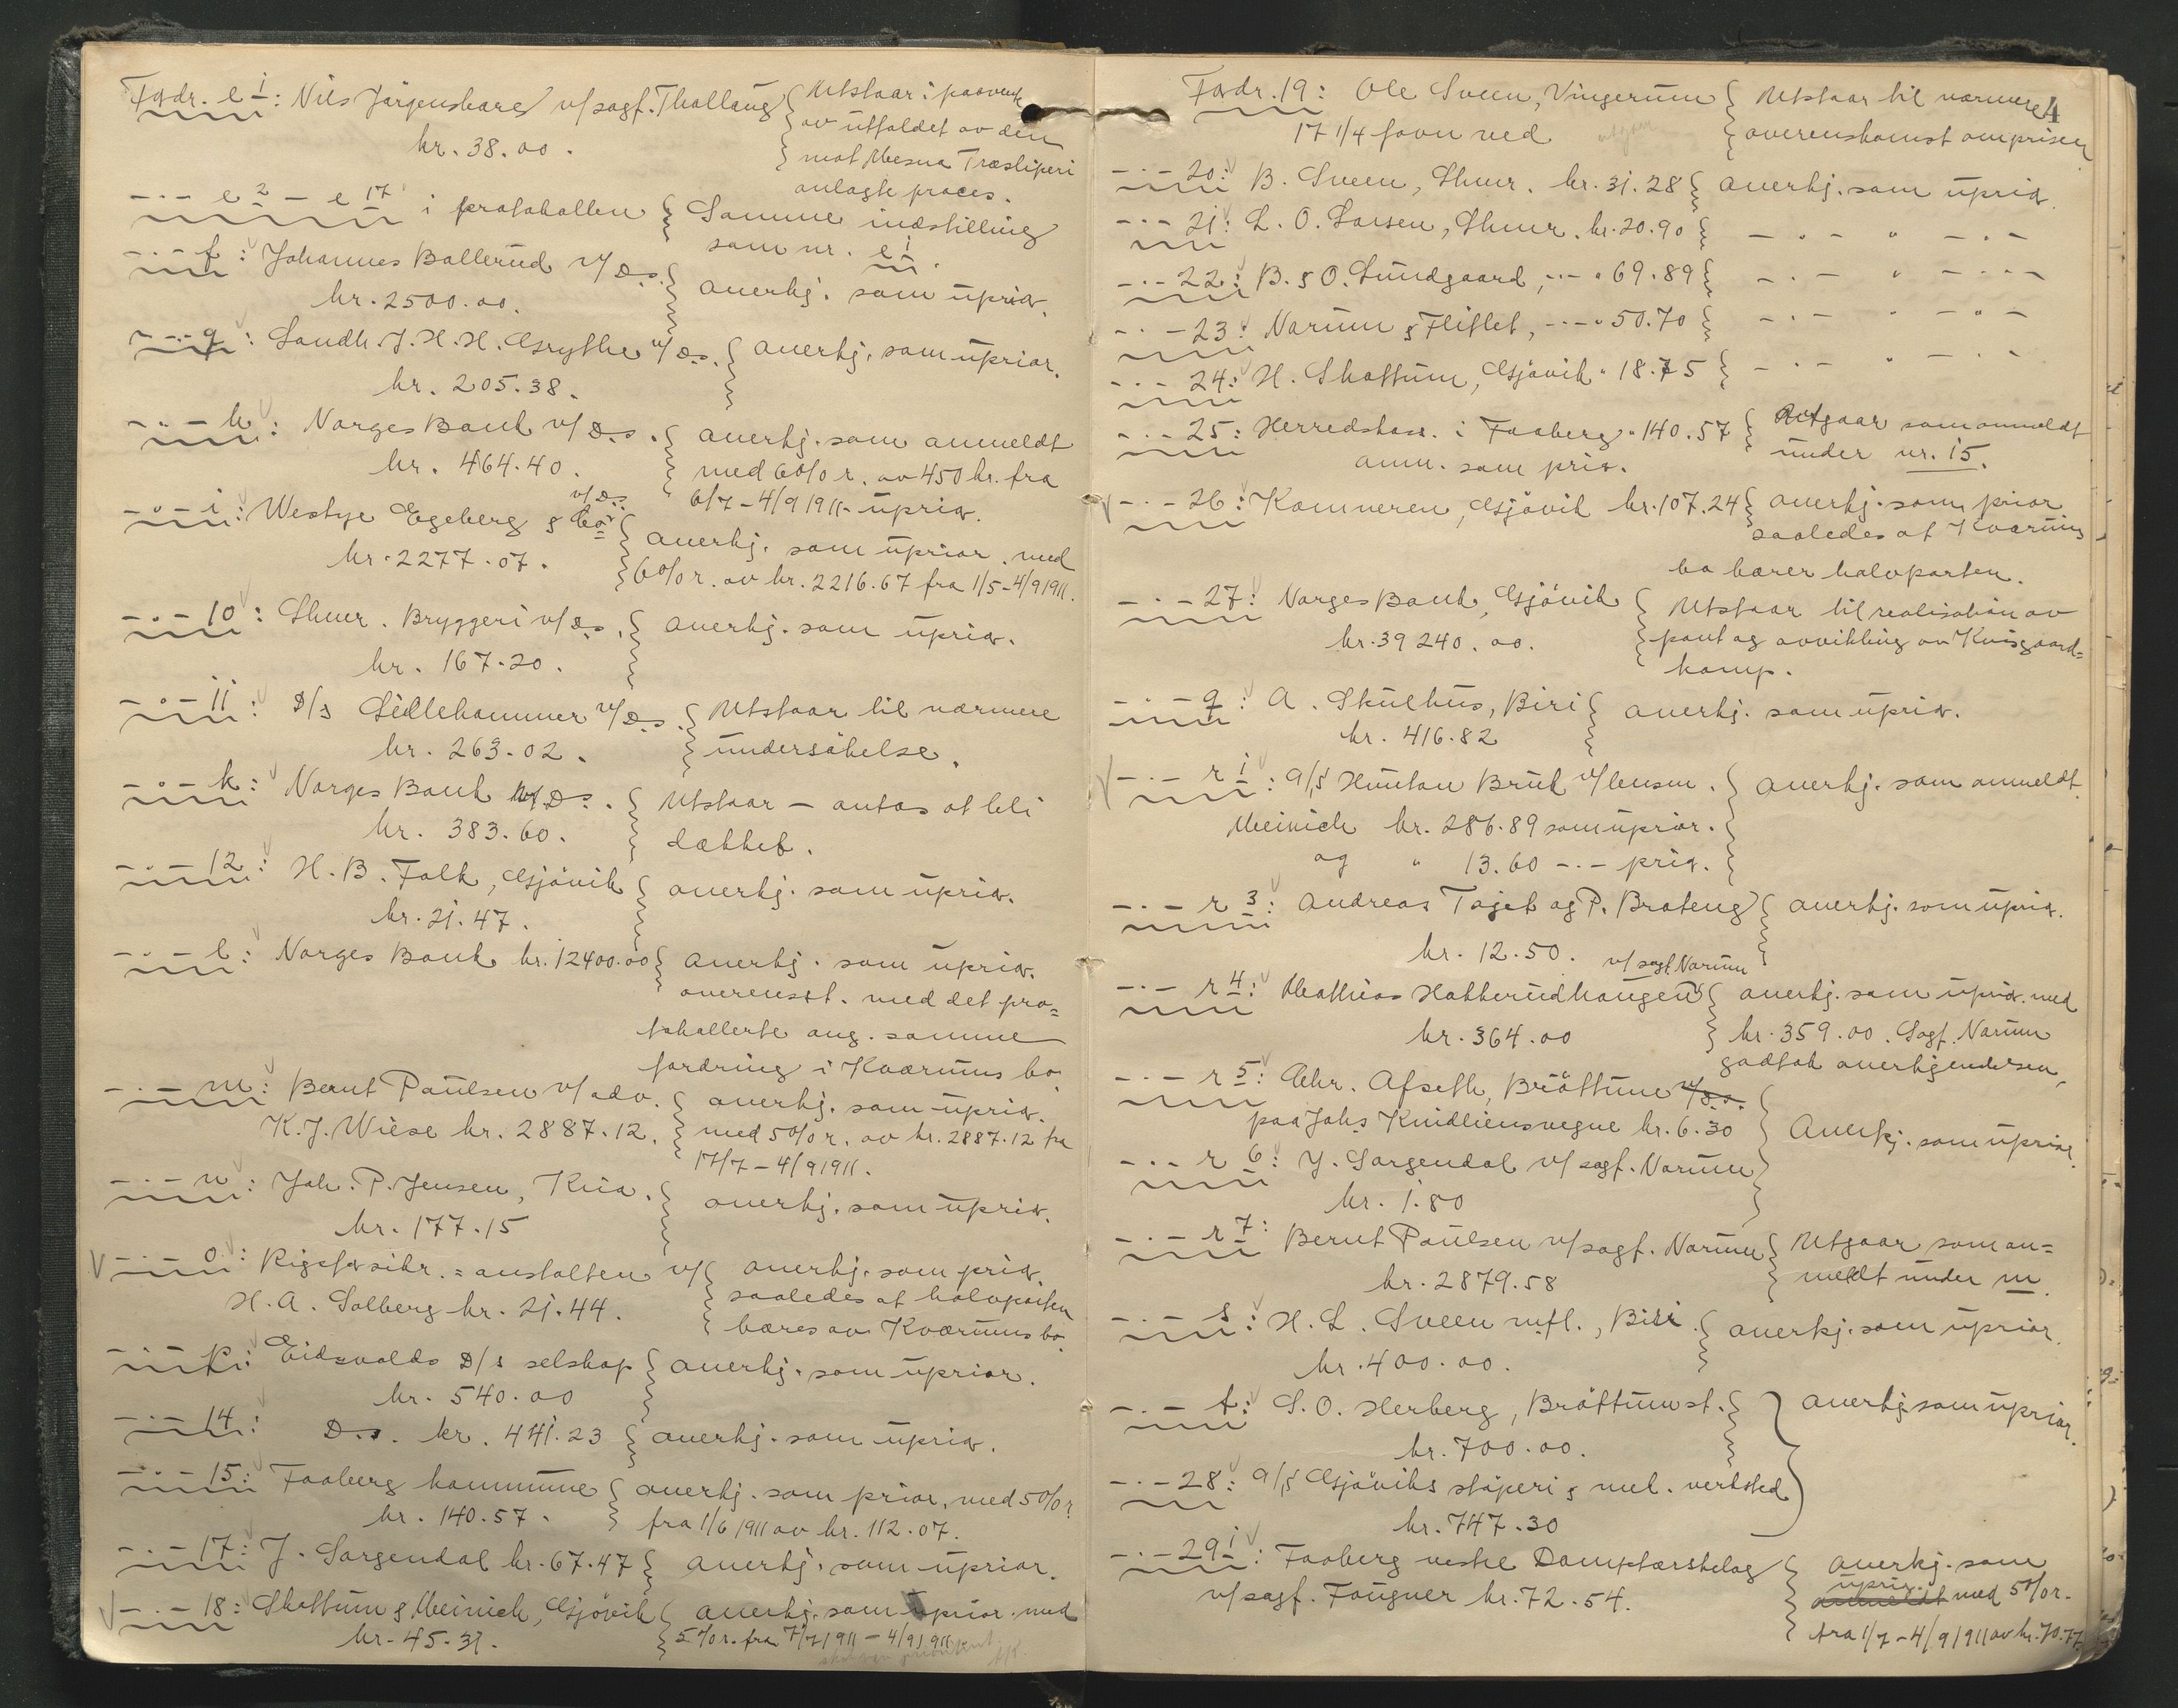 Fordr. e 1: Nils Jörgenshare v/ sagf. Thallaug { Utstaar i paavente
kr. 38.00. av utfaldet av den
mot Mesna Træsliperi
anlagte proces.
-·- e 2 – e 17 i protokollen { Samme indstilling
som nr. e 1.
-·- f: Johannes Ballerud v/ D.s. { anerkj. som upriv.
kr. 2500.00.
-·- g: Landh. J. H. H. Grythe v/ D.s. { anerkj. som uprior.
kr. 205.38.
-·- h: Norges Bank v/ D.s. { anerkj. som anmeldt
kr. 464.40. med 6 % r. av 450 kr. fra
6/7 – 4/9 1911 – upriv.
-·- i: Westye Egeberg & Co v/ D.s. { anerkj. som uprior. med
kr. 2277.07. 6 % r. av kr. 2216.67 fra 1/5 – 4/9 1911.
-·- 10: Lhmr. Bryggeri v/ D.s. { anerkj. som upriv.
kr. 167.20.
-·- 11: D/s Lillehammer v/ D.s. { Utstaar til nærmere
kr. 263.02. undersökelse.
-·- k: Norges Bank v/ D.s. { Utstaar – antas at bli
kr. 383.60. dækket.
-·- 12: H. B. Falk, Gjövik { anerkj. som upriv.
kr. 21.47.
-·- l: Norges Bank kr. 12400.00 { anerkj. som upriv.
overensst. med det pro=
tokollerte ang. samme
fordring i Kværnums bo.
-·- m: Bernt Paulsen v/ adv. { anerkj. som upriv.
K. J. Wiese kr. 2887.12. med 5 % r. av kr. 2887.12 fra
17/7 – 4/9 1911.
-·- n: Joh. P. Jensen, Kria. { anerkj. som upriv.
kr. 177.15
-·- o: Rigsforsikr.=anstalten v/ { anerkj. som priv.
H. A. Solberg kr. 21.44. saaledes at halvparten
bæres av Kværnums bo.
-·- p: Eidsvolds D/s selskap { anerkj. som uprior.
kr. 540.00
-·- 14: D.s. kr. 441.23 { anerkj. som upriv.
-·- 15: Faaberg kommune { anerkj. som prior. med 5 % r.
kr. 140.57. fra 1/6 1911 av kr. 112.07.
-·- 17: J. Sorgendal kr. 67.47 { anerkj. som uprior.
-·- 18: Skattum & Meinich, Gjövik { anerkj. som uprior. med
kr. 45.31. 5 % r. fra 7/7 1911 – 4/9 1911
4
Fordr. 19: Ole Sveen, Vingerum { Utstaar til nærmere
17 1/4 favn ved overenskomst om prisen
-·- 20: B. Sveen, Lhmr. kr. 31.28 { anerkj. som upriv.
-·- 21: L. O. Larsen, Lhmr. kr. 20.90 { -·- " -·-
-·- 22: B. & O. Sundgaard, -·- " 69.89 { -·- " -·-
-·- 23: Narum & Fliflet, -·- " 50.70 { -·- " -·-
-·- 24: H. Skattum, Gjövik " 18.75 { -·- " -·-
-·- 25: Herredskass. i Faaberg " 140.57 { Utgaar som anmeldt
anm. som priv. under nr. 15.
-·- 26: Kæmneren, Gjövik kr. 107.24 { anerkj. som prior
saaledes at Kværnums
bo bærer halvparten.
-·- 27: Norges Bank, Gjövik { Utstaar til realisation av
kr. 39 240.00. pant og avvikling av Kvisgaard=
komp.
-·- q: A. Skulhus, Biri { anerkj. som upriv.
kr. 416.82
-·- r 1: A/S Hunton Bruk v/ lensm. { anerkj. som anmeldt
Meinich kr. 286.89 som uprior.
og " 13.60 -·- priv.
-·- r 3: Andreas Tajet og P. Brateng { anerkj. som upriv.
kr. 12.50.
-·- r 4: Mathias Hakkerudhaugen v/ sagf. Narum { anerkj. som upriv. med
kr. 364.00 kr. 359.00. Sagf. Narum
godtok anerkjendelsen.
-·- r 5: Chr. Afseth, Bröttum v/ D.s.
paa Johs Knidliens vegne kr. 6.30 } Anerkj. som upriv.
-·- r 6: J. Sorgendal v/ sagf. Narum
kr. 1.80
-·- r 7: Bernt Paulsen v/ sagf. Narum { Utgaar som an=
kr. 2879.58 meldt under m.
-·- s: H. L. Sveen m.fl., Biri. { anerkj. som uprior.
kr. 400.00.
-·- t: S. O. Herberg, Bröttum st. } anerkj. som uprior.
kr. 700.00.
-·- 28: A/S Gjöviks stöperi & mek. verksted
kr. 747.30
-·- 29 1: Faaberg vestre Damptærskelag { anerkj. som
v/ sagf. Fougner kr. 72.54. upriv. anmeldt med 5 % r.
fra 1/7 – 4/9 1911 av kr. 70.77